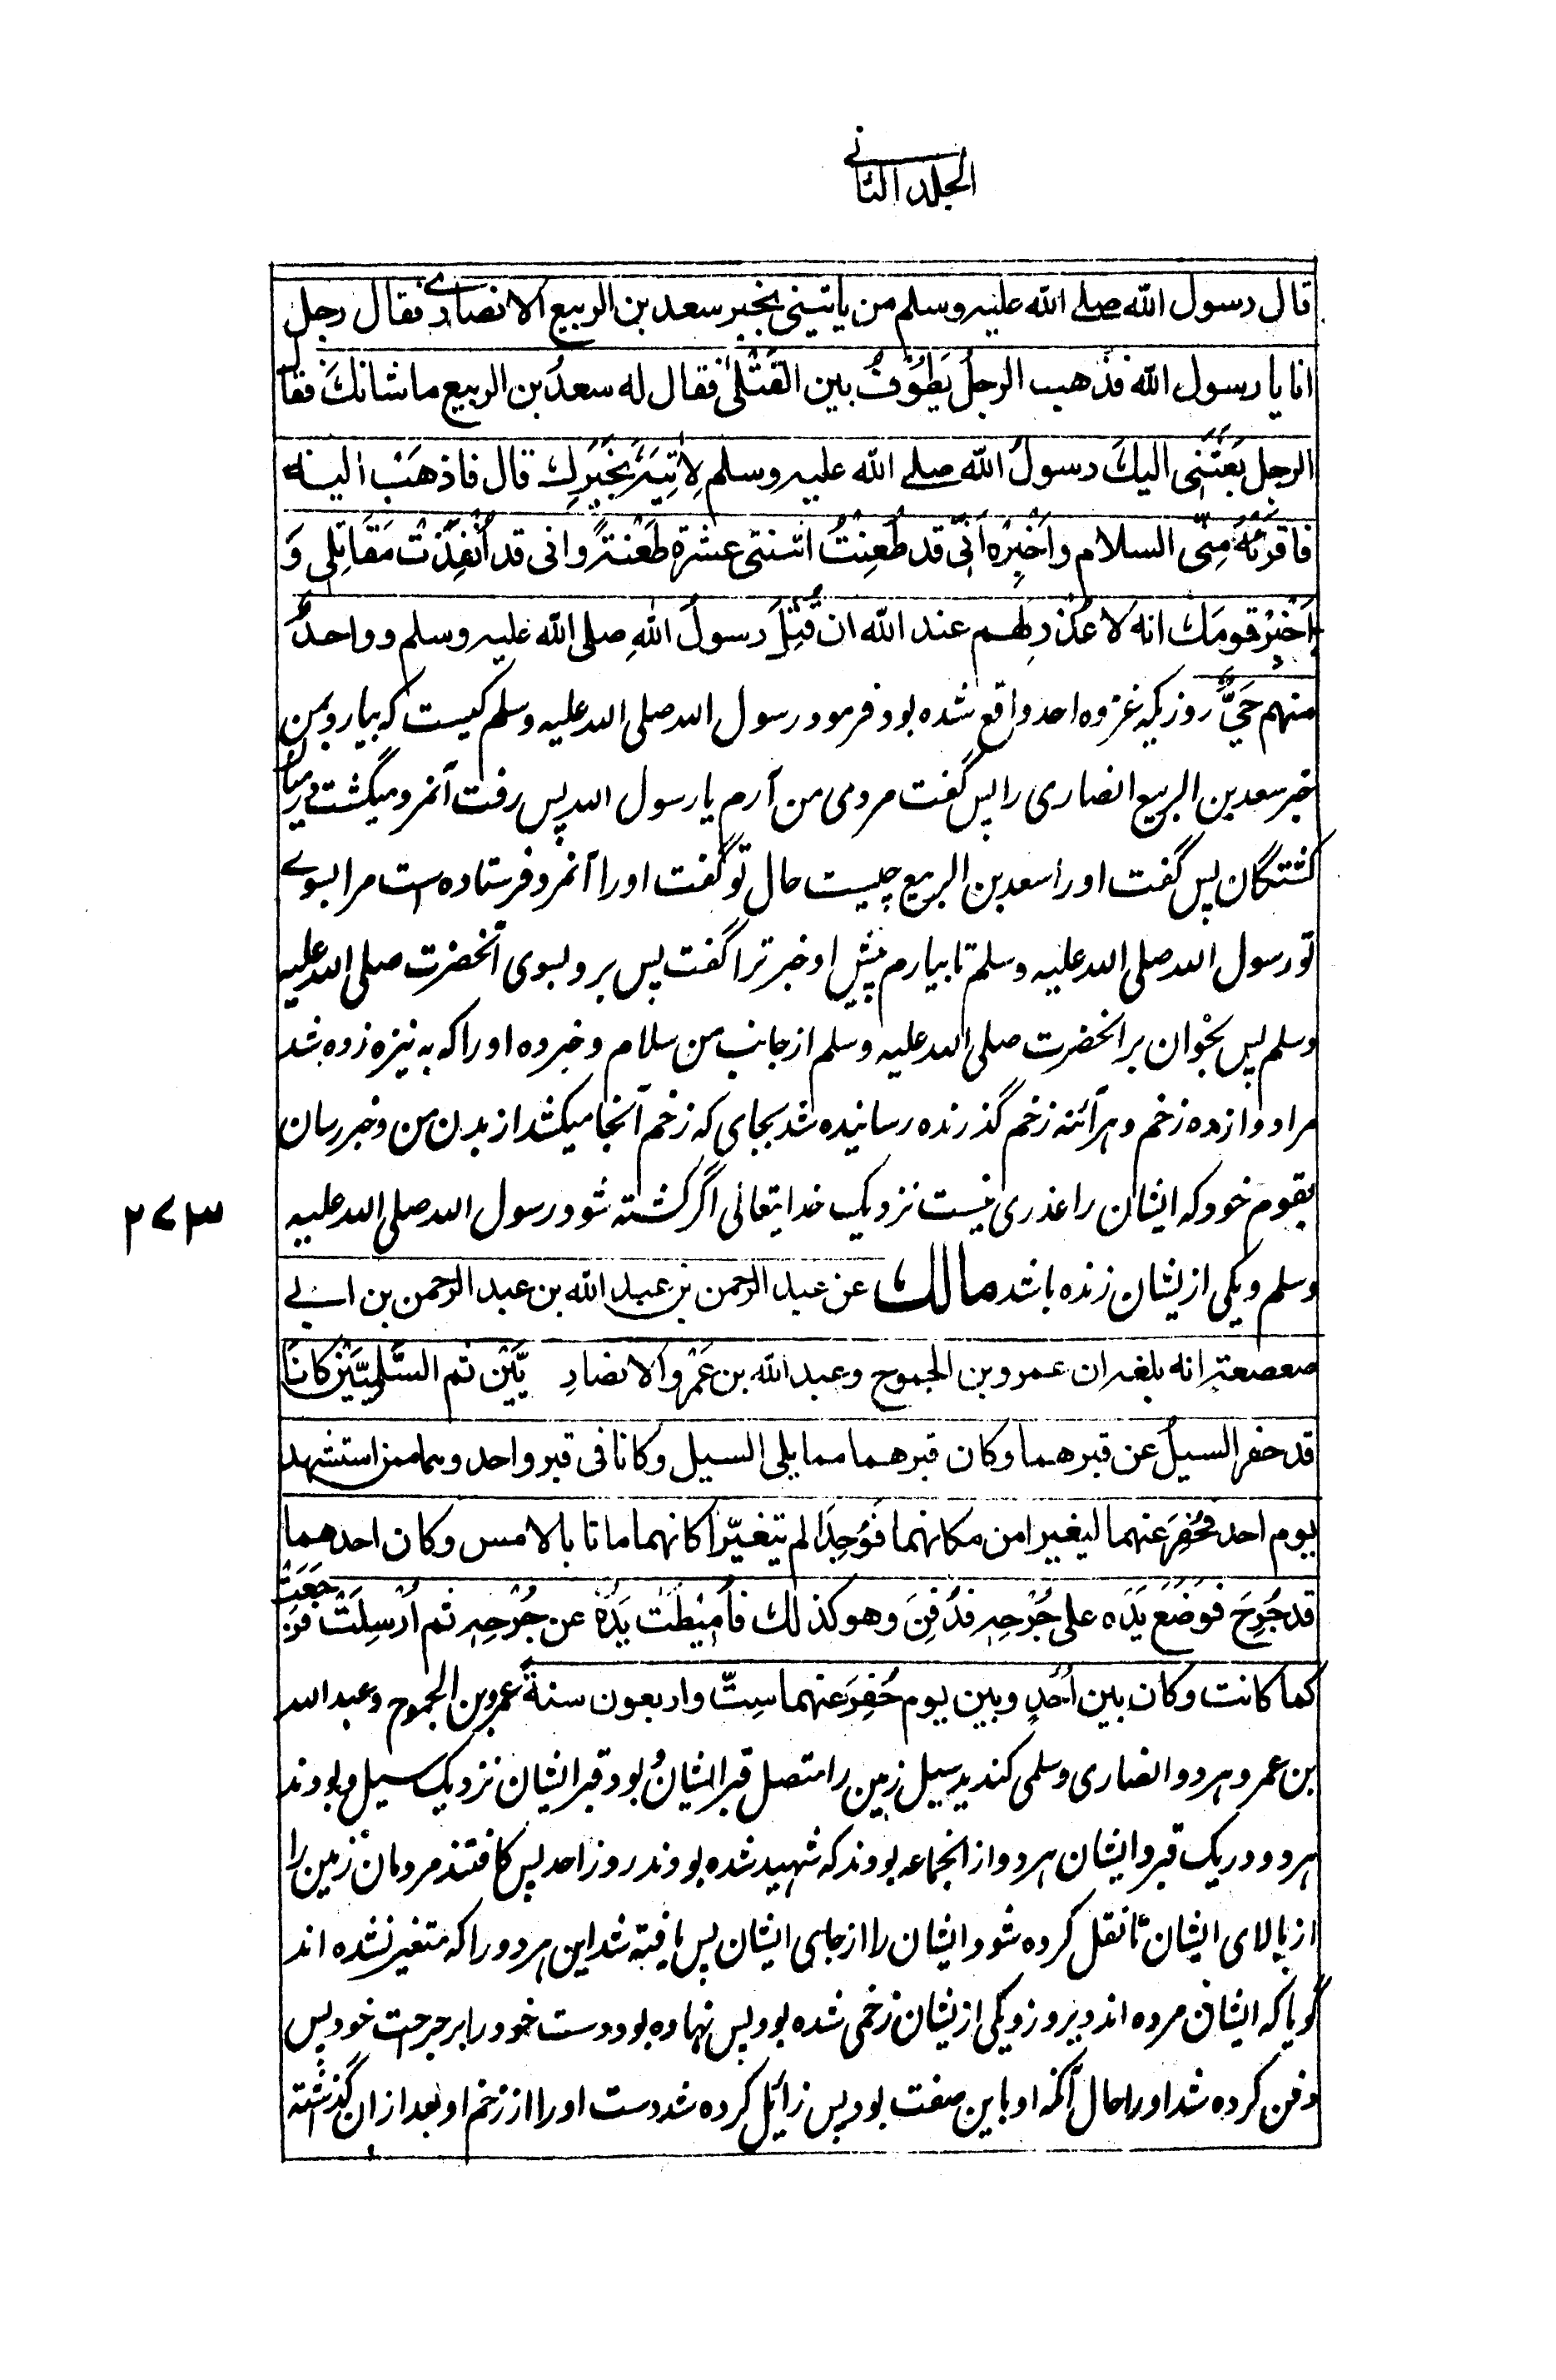 الجلد الثانی
قال رسول الله صلے الله علیه وسلم من یاتینی بخبر سعد بن الربیع الانصارے فقال رجل
انا یا رسول الله فذهب الرجلُ یَطُوْفُ بین القَتْلیٰ فقال له سعدُ بن الربیع ما شانكَ فقال
الرجل بَعَثَنِی الیكَ رسولُ الله صلے الله علیه وسلم لِاٰتِیَهٗ بخَبَرِك قال فاذهَبْ الیه
فاقرئهُ مِنِّی السلام واَخْبِرْه اَنِّی قد طُعِنْتُ اثنتی عشرة طَعْنةً وانی قد اُنْفِذَتْ مَقَاتِلِی وَ
اَخْبِرْ قومَك انه لا عُذْرَ لهم عند الله ان قُتِلَ رسولُ اللهِ صلی الله علیه وسلم وواحدٌ
منهم حَیٌّ روزیکه غزوه احد واقع شده بود فرمود رسول الله صلی الله علیه وسلم کیست که بیارد بمن
خبر سعد بن الربیع انصاری را پس گفت مردمی من آرم یا رسول الله پس رفت آنمرد میگشت درمیان
کشتگان پس گفت او را سعد بن الربیع چیست حال تو گفت او را آنمرد فرستاده است مرا بسوے
تو رسول الله صلی الله علیه وسلم تا بیارم پیش او خبر ترا گفت پس برو بسوی آنحضرت صلی الله علیه
وسلم پس بخوان بر انحضرت صلی الله علیه وسلم از جانب من سلام و خبر ده او را که به نیزه زده شد
مرا دوازده زخم و هرآئنه زخم گذرنده رسانیده شد بجای که زخم آنجا میکشد از بدن من و خبر رسان
بقوم خود که ایشان را عذری نیست نزدیک خدایتعالی اگر کشته شود رسول الله صلی الله علیه
وسلم و یکی ازیشان زنده باشد مالك عن عبد الرحمن بن عبد الله بن عبد الرحمن بن ابے
صعصعة انه بلغه ان عمرو بن الجموح وعبد الله بن عَمْرو الانصارِ یَّیْن ثم السَّلَمِیَّیْنِ کانَا
قد حفر السیلُ عن قبرهما وکان قبرهما مما یلی السیل وکانا فی قبر واحد وهما ممن استشهد
یوم احد فحُفِرَ عنهما لیغیرا من مکانهما فَوُجِدَا لم یتغیّرا کانهما ماتا بالامس وکان احدهما
قد جُرِحَ فوَضَعَ یَدَه علی جُرْحِه فدُفِنَ وهو کذلك فاُمِیْطَتْ یَدُهٗ عن جُرْحِه ثم اُرْسِلَتْ فرَجَعَتْ
کما کانت وکان بین اُحُدٍ وبین یوم حُفِرَ عنهما سِتّ واربعون سنةً عمرو بن الجموح و عبد الله
بن عمرو هر دو انصاری و سلمی کندید سیل زمین را متصل قبر ایشانُ بود قبر ایشان نزدیک سیل و بودند
هر دو در یک قبر و ایشان هر دو از انجماعه بودند که شهید شده بودند روز احد پس کافتند مردمان زمین را
از بالای ایشان تا نقل کرده شود ایشان را از جای ایشان پس یافته شد این هر دو را که متغیر نشده اند
گویا که ایشان مرده اند دیروز و یکی ازیشان زخمی شده بود پس نهاده بود دست خود را بر جرحت خود پس
دفن کرده شد او را حال آنکه او باین صفت بود پس زائل کرده شد دست او را از زخم او بعد ازان گذشته
۲۷۳